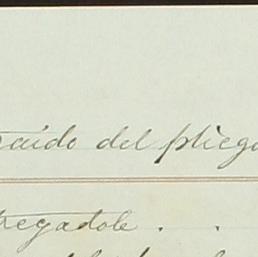 caido del pliego
regadole . .